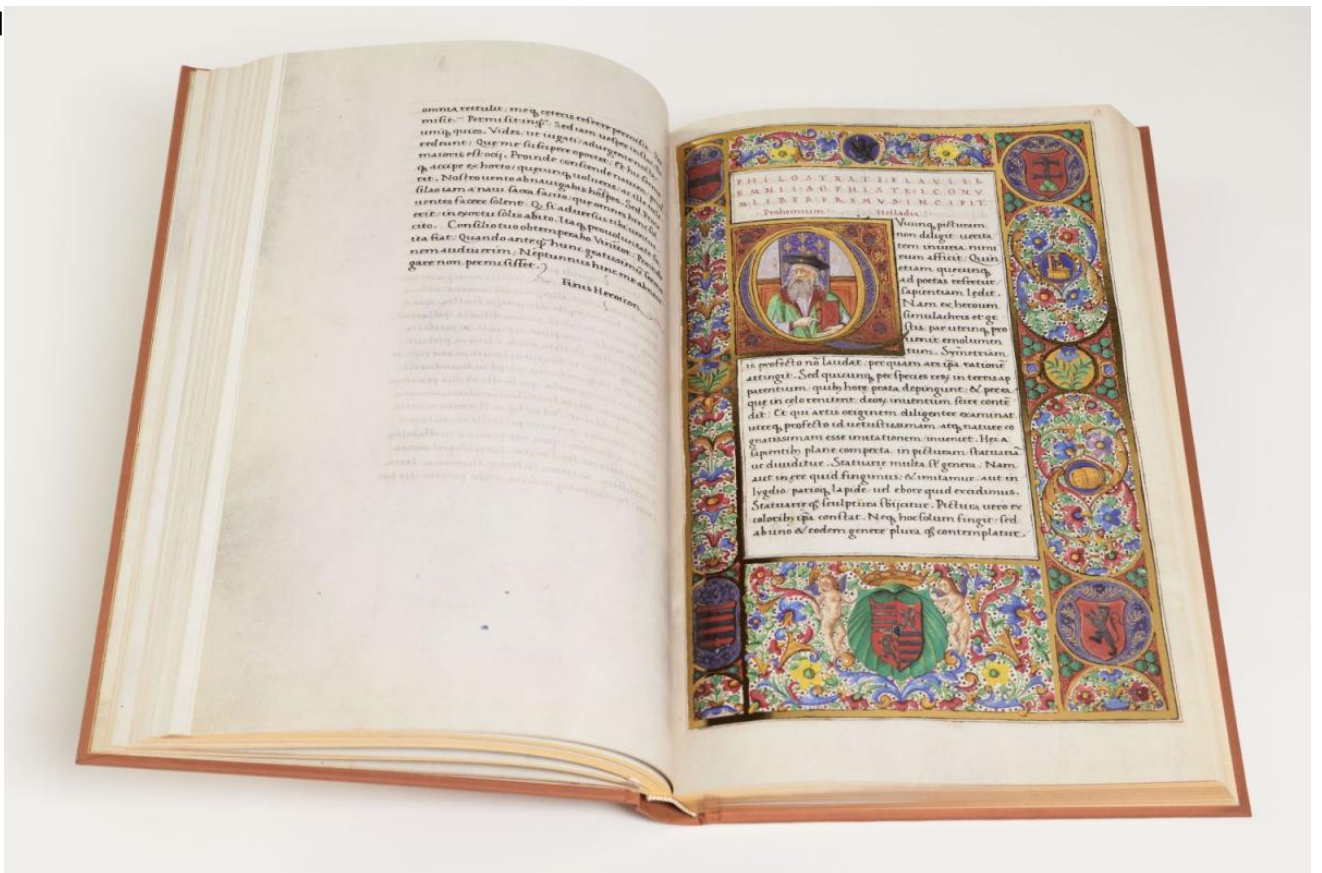 omnia rettulit. meq; ceteris referre permisit.
misit. Permisit inq; Sed iam uesper
umq; quies. Vides, ut uigati, adurgente nocte
redeunt: Que me suscipere oportet. Et huc
maioris est ocij. Proinde conscende nauem,
q; accipe ex horto, quęcunq; uolueris, ac ille
ret. Nostro uento ab nauigabis hospes. Sed
silao iam a naui sacra facito, que omnes hinc
uentes facere solent: Q; si aduersus tibi uentus
erit, in exortu solis abito. Itaq; pro uoluntate
cito. Consilio tuo obtemperabo Vinitor: Protesilao
ita fiat. Quando anteq; hunc gratuissimu sermo
nem audiuerim, Neptunnus hinc me abnaui
gare non permisisset.
Finis Heroicon
PHILOSTRATI FLAVII L
EMNII SOPHISTE ICONV
M LIBER PREMVS INCIPIT
Prohemium Helladia
Vicunq; picturam
non diligit: uerita
tem iniuria nimi
rum afficit: Quin
etiam quecunq;
ad poetas refertur,
sapientiam lędit.
Nam ex heroum
simulachris et ge
stis par utrinq; pro
uenit emolumen
tum. Symetriam
is profecto nō laudat, per quam ars ipa rationē
attingit. Sed quicunq; per species reꝝ in terris ap
parentium, quib; hore prata depingunt: & per ea
que in celo renitent: deoꝝ inuentum fere conte
dit: Et qui artis originem diligenter examinat
uterq; profecto id uetustissimam atq; nature co
gnatissimam esse imitationem, inueniet. Hec a
sapientib; plane comperta, in picturam, statuariā
uc diuiditur. Statuarie multa st genera: Nam
aut in ęre quid fingimus: & imitamur: aut in
lygdio, parioq; lapide: uel ebore quid excidimus.
Statuarie q; sculptura sbijcitur. Pictura uero ex
colorib; ipa constat. Neq; hoc solum fingit: sed
ab uno & eodem genere plura q; contemplatur.